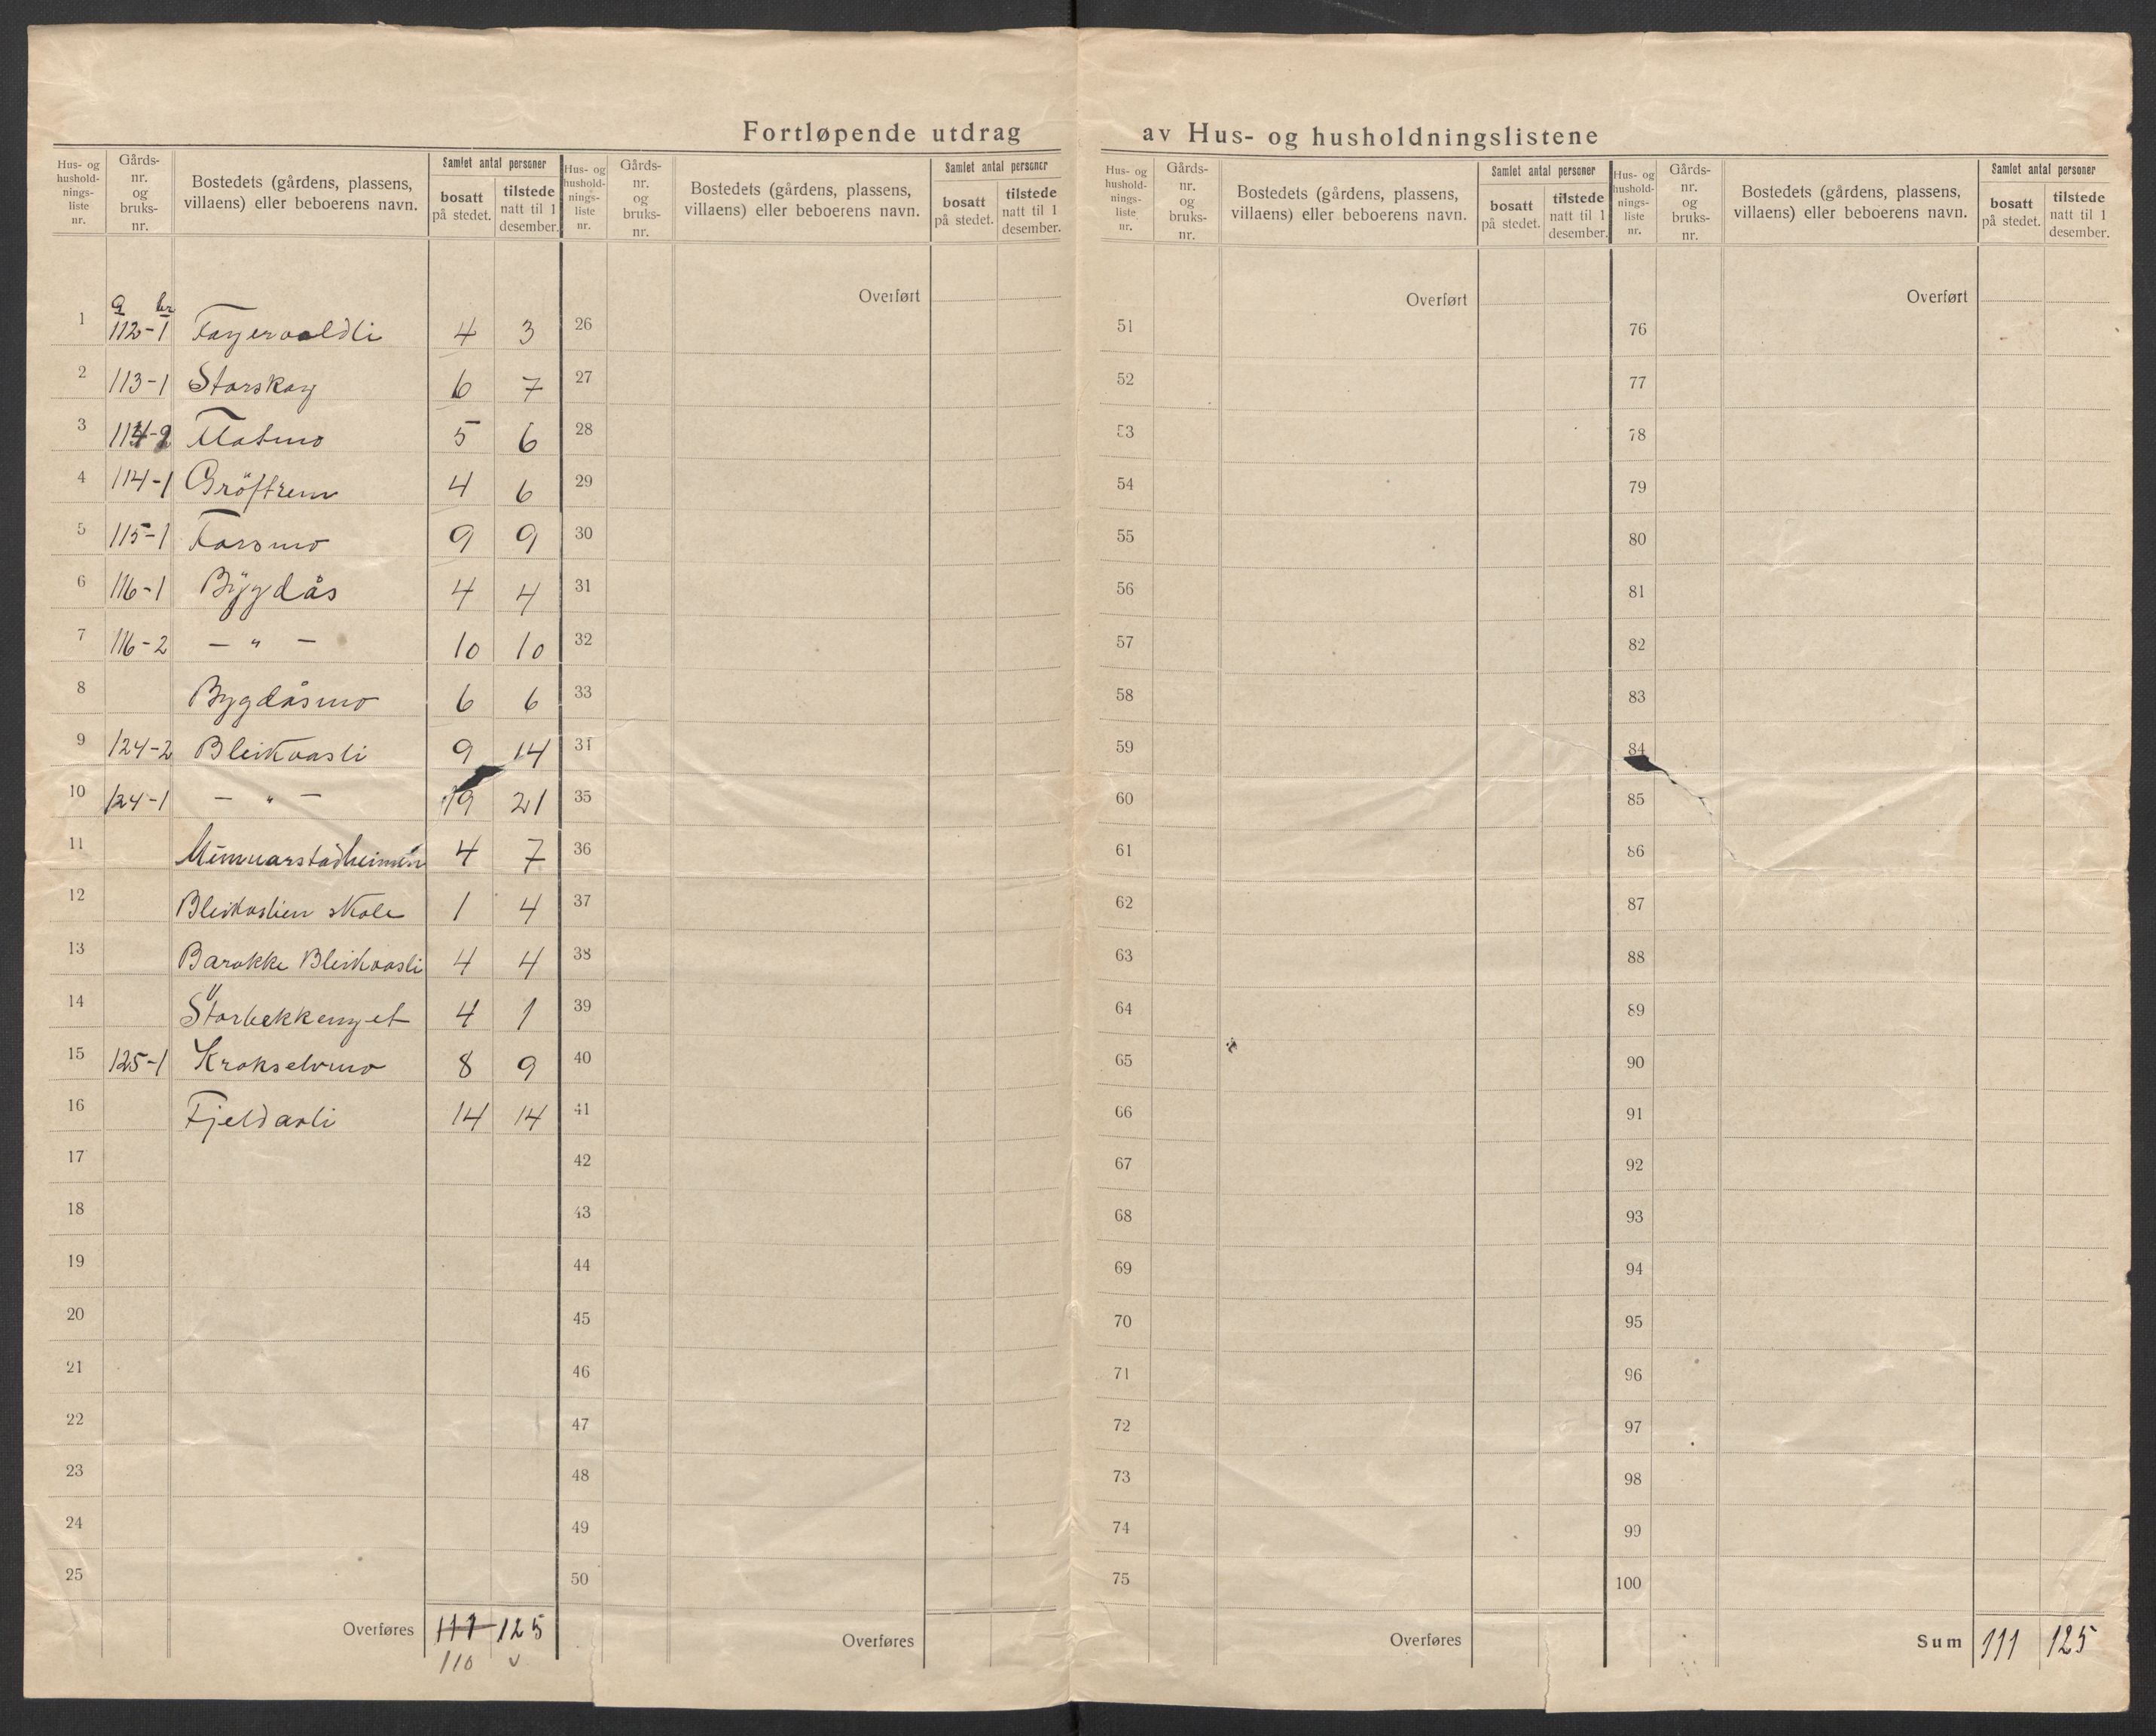 Fortløpende utdrag av Hus- og husholdningslistene
Hus- og hushold-nings-liste nr. | Gårds-nr. og bruks-nr. | Bostedets (gårdens, plassens, villaens) eller beboerens navn. | Samlet antal personer | bosatt på stedet. | tilstede natt til 1 desember.
Hus- og hushold-nings-liste nr. | Gårds-nr. og bruks-nr. | Bostedets (gårdens, plassens, villaens) eller beboerens navn. | Samlet antal personer | bosatt på stedet. | tilstede natt til 1 desember.
Hus- og hushold-nings-liste nr. | Gårds-nr. og bruks-nr. | Bostedets (gårdens, plassens, villaens) eller beboerens navn. | Samlet antal personer | bosatt på stedet. | tilstede natt til 1 desember.
Hus- og hushold-nings-liste nr. | Gårds-nr. og bruks-nr. | Bostedets (gårdens, plassens, villaens) eller beboerens navn. | Samlet antal personer | bosatt på stedet. | tilstede natt til 1 desember.
g br
1 112-1 Fagervoldli 4 3
2 113-1 Storskog 6 7
3 114-2 Flatmo 5 6
4 114-1 Gröftrem 4 6
5 115-1 Forsmo 9 9
6 116-1 Bygdås 4 4
7 116-2 — " — 10 10
8 Bygdåsmo 6 6
9 124-2 Bleikvasli 9 14
10 124-1 — " — 19 21
11 4 7
12 Bleikvaslien skole 1 4
13 Barakke Bleikvasli 4 4
14 Storbekkenget 4 1
15 125-1 Krokselvmo 8 9
16 Fjeldavli 14 14
17
18
19
20
21
22
23
24
25
Overføres 111 125
110 v
Overført
26
27
28
29
30
31
32
33
34
35
36
37
38
39
40
41
42
43
44
45
46
47
48
49
50
Overføres
Overført
51
52
53
54
55
56
57
58
59
60
61
62
63
64
65
66
67
68
69
70
71
72
73
74
75
Overføres
Overført
76
77
78
79
80
81
82
83
84
85
86
87
88
89
90
91
92
93
94
95
96
97
98
99
100
Sum 111 125